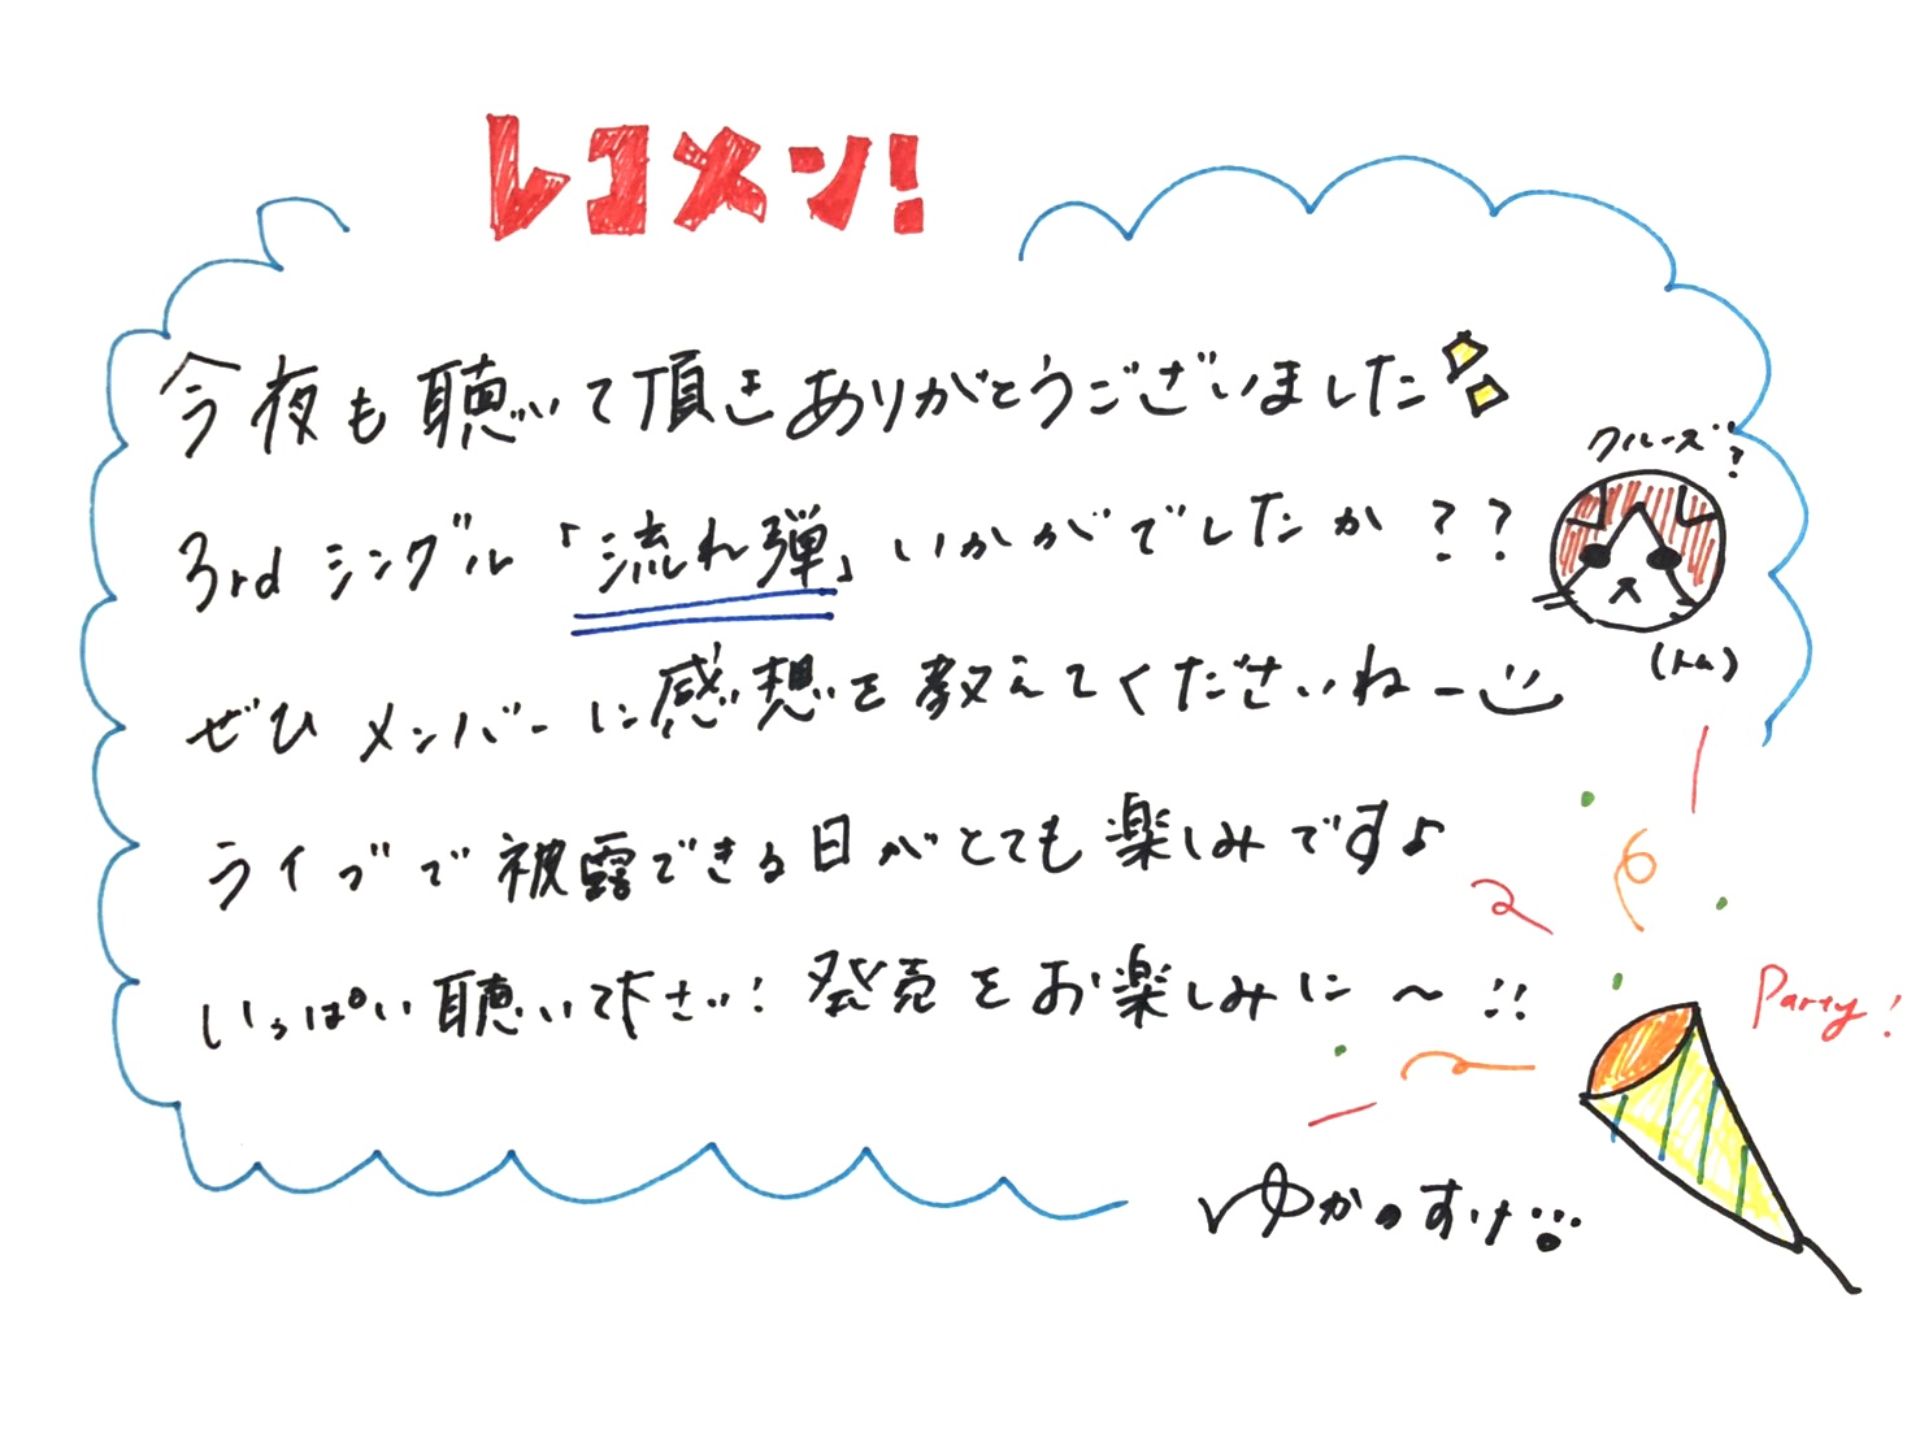 レコメン!
今夜も聴いて頂きありがとうございました
クルーズ?
3rd シングル「流れ弾」いかがでしたか??
(トム)
ぜひ メンバーに感想を教えてくださいねー
ライブで被露できる日がとても楽しみです♪
いっぱい聴いて下さい! 発売をお楽しみに〜!!
Party!
ゆかのすけ